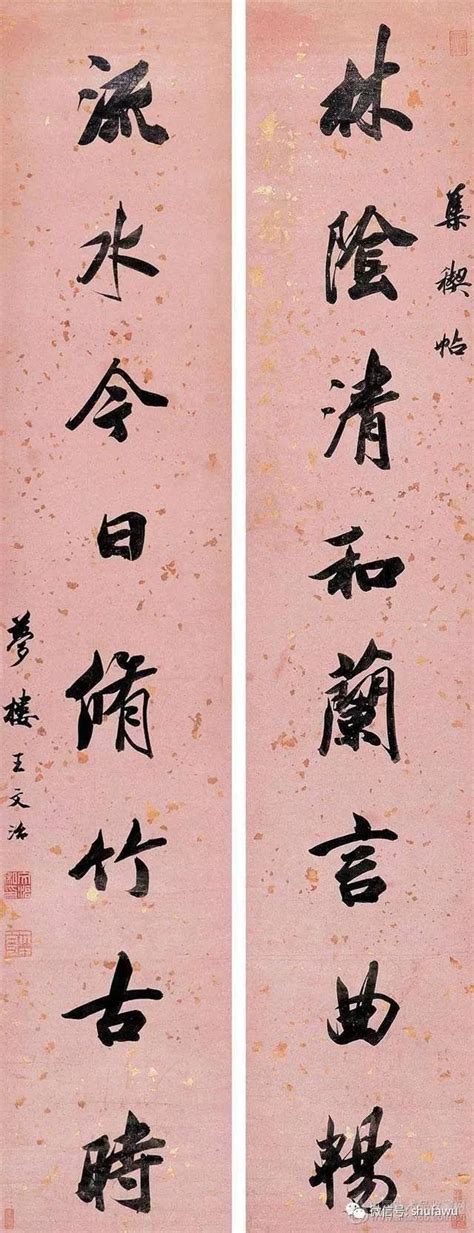 集禊帖
林陰清和蘭言曲暢
流水今日脩竹古時
夢樓王文治
微信号: shufawu